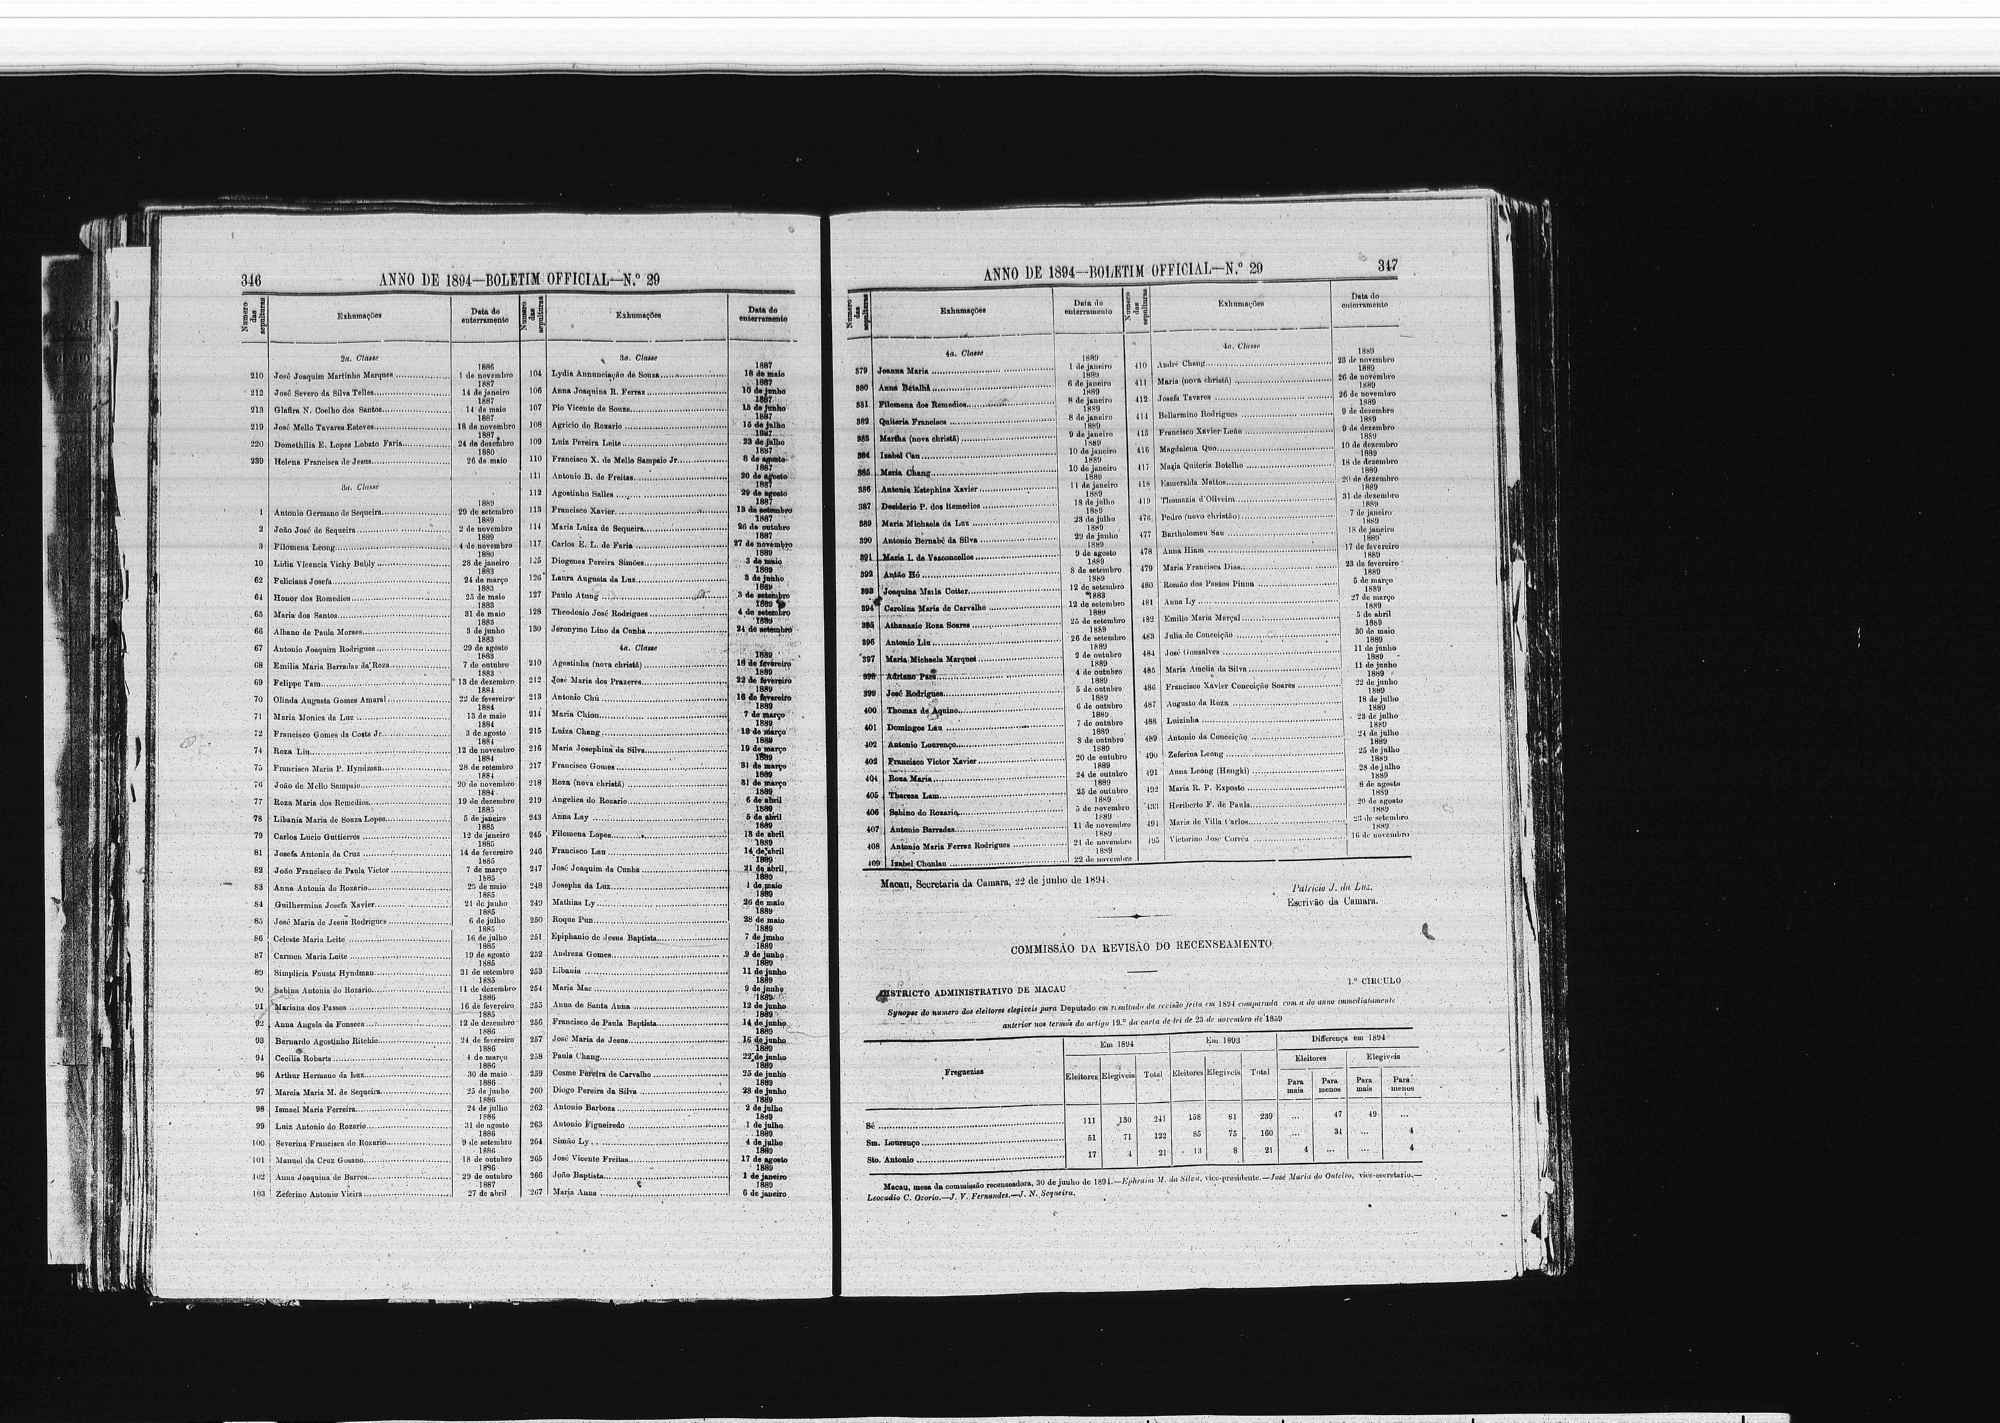 346
ANNO DE 1894—BOLETIM OFFICIAL—N.º 29
Numero das sepulturas
Exhumações
Data do enterramento
2a. Classe
1886
210 José Joaquim Martinho Marques 1 de novembro
1887
212 José Severo da Silva Telles 14 de janeiro
1887
213 Glafira N. Coelho dos Santos 14 de maio
1887
219 José Mello Tavares Esteves 18 de novembro
1887
220 Domethilia E. Lopes Lobato Faria 24 de dezembro
1880
239 Helena Francisca de Jesus 26 de maio
3a. Classe
1889
1 Antonio Germano de Sequeira 29 de setembro
1889
2 João José de Sequeira 2 de novembro
1889
3 Filomena Leong 4 de novembro
1880
10 Lidia Vicencia Vichy Bubly 28 de janeiro
1883
62 Feliciana Josefa 24 de março
1883
64 Honor dos Remedios 25 de maio
1883
65 Maria dos Santos 31 de maio
1883
66 Albano de Paula Moraes 3 de junho
1883
67 Antonio Joaquim Rodrigues 29 de agosto
1883
68 Emilia Maria Barradas da Roza 7 de outubro
1883
69 Felippe Tam 13 de dezembro
1884
70 Olinda Augusta Gomes Amaral 22 de fevereiro
1884
71 Maria Monica da Luz 13 de maio
1884
72 Francisco Gomes da Costa Jr. 3 de agosto
1884
74 Roza Liu 12 de novembro
1884
75 Francisco Maria P. Hyndman 28 de setembro
1884
76 João de Mello Sampaio 20 de novembro
1884
77 Roza Maria dos Remedios 19 de dezembro
1885
78 Libania Maria de Souza Lopes 5 de janeiro
1885
79 Carlos Lucio Guttierres 12 de janeiro
1885
81 Josefa Antonia da Cruz 14 de fevereiro
1885
82 João Francisco de Paula Victor 7 de março
1885
83 Anna Antonia do Rozario 25 de maio
1885
84 Guilhermina Josefa Xavier 21 de junho
1885
85 José Maria de Jesus Rodrigues 6 de julho
1885
86 Celeste Maria Leite 16 de julho
1885
87 Carmen Maria Leite 19 de agosto
1885
89 Simplicia Fausta Hyndman 21 de setembro
1885
90 Sabina Antonia do Rozario 11 de dezembro
1886
91 Mariana dos Passos 16 de fevereiro
1885
92 Anna Angela da Fonseca 12 de dezembro
1886
93 Bernardo Agostinho Ritchie 24 de fevereiro
1886
94 Cecilia Robarts 4 de março
1886
96 Arthur Hermano da Luz 30 de maio
1886
97 Marcia Maria M. de Sequeira 25 de junho
1886
98 Ismael Maria Ferreira 24 de julho
1886
99 Luiz Antonio do Rozario 31 de agosto
1886
100 Severina Francisca do Rozario 9 de setembro
1886
101 Manuel da Cruz Gosano 18 de outubro
1886
102 Anna Joaquina de Barros 29 de outubro
1887
103 Zeferino Antonio Vieira 27 de abril
Numero das sepulturas
Exhumações
Data do enterramento
3a. Classe
1887
104 Lydia Annunciação de Souza 18 de maio
1887
106 Anna Joaquina R. Ferraz 10 de junho
1887
107 Pio Vicente de Souza 15 de junho
1887
108 Agricio do Rozario 15 de julho
1887
109 Luiz Pereira Leite 23 de julho
1887
110 Francisco X. de Mello Sampaio Jr. 8 de agosto
1887
111 Antonio B. de Freitas 20 de agosto
1887
112 Agostinho Salles 29 de agosto
1887
113 Francisco Xavier 13 de setembro
1887
114 Maria Luiza de Sequeira 26 de outubro
1887
117 Carlos E. L. de Faria 27 de novembro
1889
125 Diogenes Pereira Simões 3 de maio
1889
126 Laura Augusta da Luz 3 de junho
1889
127 Paulo Atung 3 de setembro
1889
128 Theodosio José Rodrigues 4 de setembro
1889
130 Jeronymo Lino da Cunha 24 de setembro
4a. Classe
1889
210 Agostinha (nova christã) 18 de fevereiro
1889
212 José Maria dos Prazeres 22 de fevereiro
1889
213 Antonio Chú 18 de fevereiro
1889
214 Maria Chion 7 de março
1889
215 Luiza Chang 18 de março
1889
216 Maria Josephina da Silva 19 de março
1889
217 Francisco Gomes 31 de março
1889
218 Roza (nova christã) 31 de março
1889
219 Angelica do Rozario 6 de abril
1889
243 Anna Lay 5 de abril
1889
245 Filomena Lopes 13 de abril
1889
246 Francisco Lau 14 de abril
1889
247 José Joaquim da Cunha 21 de abril
1889
248 Josepha da Luz 1 de maio
1889
249 Mathias Ly 26 de maio
1889
250 Roque Pun 28 de maio
1889
251 Epiphanio de Jesus Baptista 7 de junho
1889
252 Andreza Gomes 9 de junho
1889
253 Libania 11 de junho
1889
254 Maria Mac 9 de junho
1889
255 Anna de Santa Anna 12 de junho
1889
256 Francisco de Paula Baptista 14 de junho
1889
257 José Maria de Jesus 16 de junho
1889
258 Paula Chang 22 de junho
1889
259 Cosme Pereira de Carvalho 25 de junho
1889
260 Diogo Pereira da Silva 28 de junho
1889
262 Antonio Barboza 2 de julho
1889
263 Antonio Figueiredo 1 de julho
1889
264 Simão Ly 4 de julho
1889
265 José Vicente Freitas 17 de agosto
1889
266 João Baptista 1 de janeiro
1889
267 Maria Anna 6 de janeiro
347
ANNO DE 1894—BOLETIM OFFICIAL—N.º 29
Numero das sepulturas
Exhumações
Data do enterramento
4a. Classe
1889
379 Joanna Maria 1 de janeiro
1889
380 Anna Batalha 6 de janeiro
1889
381 Filomena dos Remedios 8 de janeiro
1889
382 Quiteria Francisca 8 de janeiro
1889
383 Martha (nova christã) 9 de janeiro
1889
384 Izabel Cau 10 de janeiro
1889
385 Maria Chang 10 de janeiro
1889
386 Antonia Estephina Xavier 11 de janeiro
1889
387 Desiderio P. dos Remedios 18 de julho
1889
389 Maria Michaela da Luz 23 de julho
1889
390 Antonio Bernabé da Silva 29 de junho
1889
391 Maria I. de Vasconcellos 9 de agosto
1889
392 Antão Hó 8 de setembro
1889
393 Joaquina Maria Cotter 12 de setembro
1883
394 Carolina Maria de Carvalho 12 de setembro
1889
395 Athanazio Roza Soares 25 de setembro
1889
396 Antonio Liu 26 de setembro
1889
397 Maria Michaela Marques 2 de outubro
1889
398 Adriano Pars 4 de outubro
1889
399 José Rodrigues 5 de outubro
1889
400 Thomaz de Aquino 6 de outubro
1889
401 Domingos Lau 7 de outubro
1889
402 Antonio Lourenço 8 de outubro
1889
403 Francisco Victor Xavier 20 de outubro
1889
404 Roza Maria 24 de outubro
1889
405 Thereza Lam 25 de outubro
1889
406 Sabino do Rozario 5 de novembro
1889
407 Antonio Barradas 11 de novembro
1889
408 Antonio Maria Ferraz Rodrigues 21 de novembro
1889
409 Izabel Chonlau 22 de novembro
Numero das sepulturas
Exhumações
Data do enterramento
4a. Classe
1889
410 André Chang 23 de novembro
1889
411 Maria (nova christã) 26 de novembro
1889
412 Josefa Tavares 26 de novembro
1889
414 Bellarmino Rodrigues 9 de dezembro
1889
415 Francisco Xavier Leão 9 de dezembro
1889
416 Magdalena Quo 10 de dezembro
1889
417 Maria Quiteria Botelho 18 de dezembro
1889
418 Esmeralda Mattos 20 de dezembro
1889
419 Thomazia d'Oliveira 31 de dezembro
1889
476 Pedro (novo christão) 7 de janeiro
1889
477 Bartholomeu Sau 18 de janeiro
1889
478 Anna Hiam 17 de fevereiro
1889
479 Maria Francisca Dias 23 de fevereiro
1889
480 Romão dos Passos Pinna 5 de março
1889
481 Anna Ly 27 de março
1889
482 Emilio Maria Marçal 5 de abril
1889
483 Julia da Conceição 30 de maio
1889
484 José Gonsalves 11 de junho
1889
485 Maria Amelia da Silva 11 de junho
1889
486 Francisco Xavier Conceição Soares 22 de junho
1889
487 Augusto da Roza 18 de julho
1889
488 Luizinha 23 de julho
1889
489 Antonio da Conceição 24 de julho
1889
490 Zeferina Leong 25 de julho
1889
491 Anna Leong (Hengki) 28 de julho
1889
492 Maria R. P. Exposto 8 de agosto
1889
493 Heriberto F. de Paula 20 de agosto
1889
494 Maria de Villa Carlos 23 de setembro
1889
495 Victorino José Corrêa 16 de novembro
Macau, Secretaria da Camara, 22 de junho de 1894.
Patricio J. da Luz.
Escrivão da Camara.
COMMISSÃO DA REVISÃO DO RECENSEAMENTO
1.º CIRCULO
DISTRICTO ADMINISTRATIVO DE MACAU
Synopse do numero dos eleitores elegiveis para Deputado em resultado da revisão feita em 1894 comparada com a do anno immediatamente
anterior nos termos do artigo 19.º da carta de lei de 23 de novembro de 1859
Freguezias
Em 1894 Em 1893 Differença em 1894
Eleitores Elegiveis
Eleitores Elegiveis Total Eleitores Elegiveis Total
Para mais Para menos Para mais Para menos
Sé 111 130 241 158 81 239 ... 47 49 ...
Sm. Lourenço 51 71 122 85 75 160 ... 34 ... 4
Sto. Antonio 17 4 21 13 8 21 4 ... ... 4
Macau, mesa da commissão recenseadora, 30 de junho de 1894.—Ephraim M. da Silva, vice-presidente.—José Maria do Outeiro, vice-secretario.—
Leocadio C. Ozorio.—J. V. Fernandes.—J. N. Sequeira.